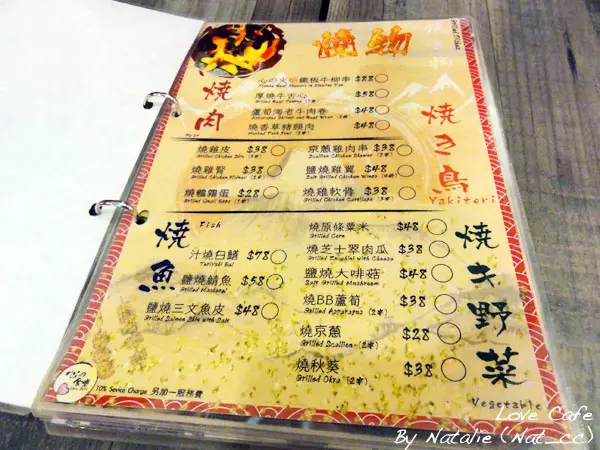 燒物
Grilled Dishes
燒肉
心の火焰鐵板牛柳串 $88
厚燒牛舌心 $58
Grilled Beef Tongue (2串)
蘆荀海老牛肉卷 $48
燒香草豬頸肉 $48
燒き鳥
Yakitori
燒雞皮 $38
Grilled Chicken Skin (2串)
京蔥雞肉串 $38
Scallion Chicken Skewer (2串)
燒雞腎 $38
鹽燒雞翼 $48
Salt Grilled Chicken Wings
燒鵪鶉蛋 $28
Grilled Quail Eggs (2串)
燒雞軟骨 $38
燒魚
Fish
汁燒白鱔 $78
Teriyaki Eel
鹽燒鯖魚 $58
Grilled Mackerel
鹽燒三文魚皮 $48
Grilled Salmon Skin with Salt
燒き野菜
Vegetable
燒原條粟米 $48
Grilled Corn
燒芝士翠肉瓜 $38
Grilled Zucchini with Cheese
鹽燒大啡菇 $48
Salt Grilled Mushroom
燒BB蘆荀 $38
Grilled Asparagus (2串)
燒京蔥 $28
Grilled Scallion (2串)
燒秋葵 $38
Grilled Okra (2串)
10% Sevice Charge 另加一服務費
Love Cafe
By Natalie (Nat_cc)